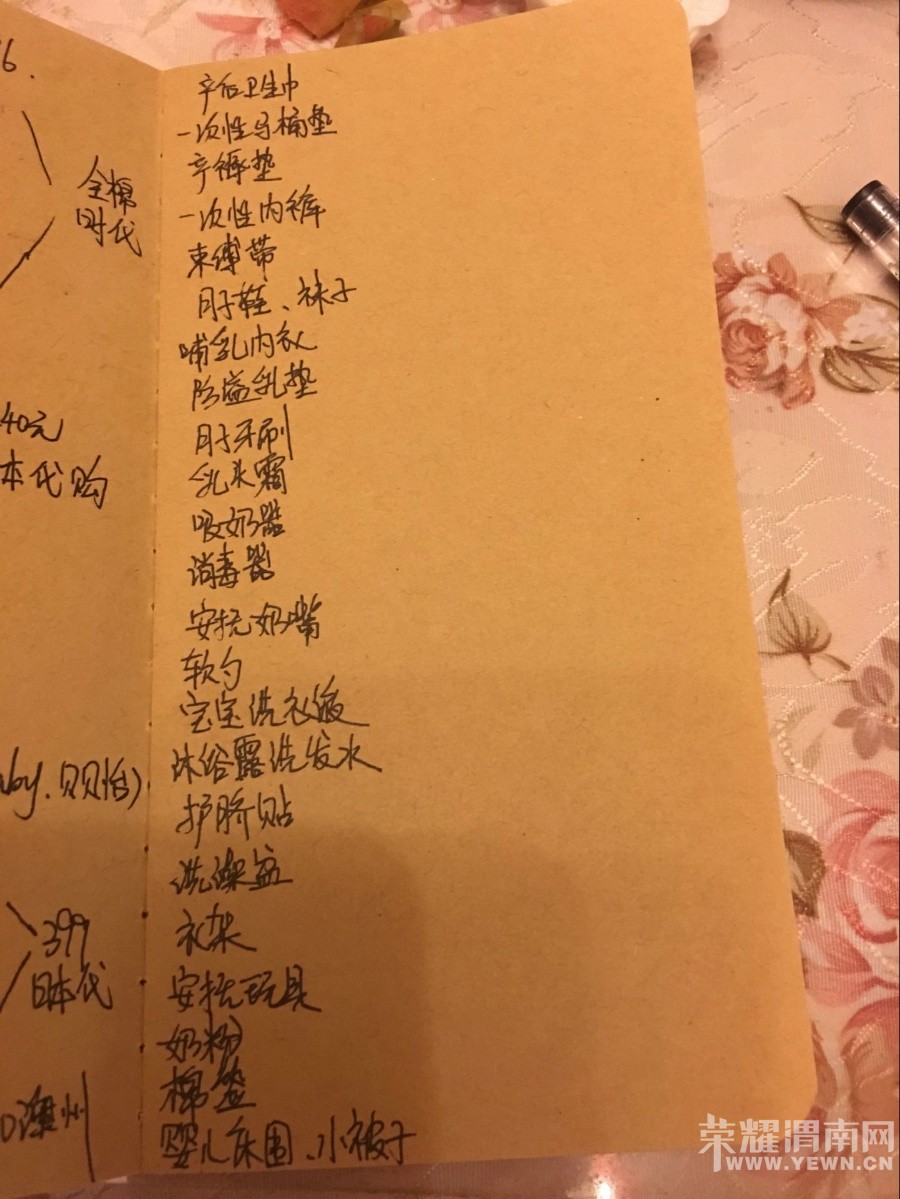 6.
全棉
时代
40元
本代购
aby.贝贝怡)
399
日本代
澳州
产后卫生巾
一次性马桶垫
产褥垫
一次性内裤
束缚带
月子鞋、袜子
哺乳内衣
防溢乳垫
月子牙刷
乳头霜
吸奶器
消毒器
安抚奶嘴
软勺
宝宝洗衣液
沐浴露洗发水
护脐贴
洗澡盆
衣架
安抚玩具
奶粉
棉签
婴儿床围、小被子
荣耀渭南网
WWW.YEWN.CN